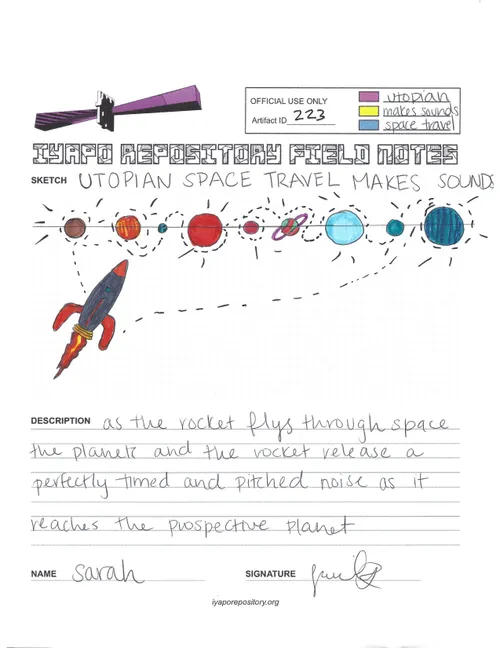 OFFICIAL USE ONLY
Artifact ID 223
utopian
makes sounds
space travel
IYAPO REPOSITORY FIELD NOTES
SKETCH UTOPIAN SPACE TRAVEL MAKES SOUNDS
DESCRIPTION as the rocket flys through space
the planets and the rocket release a
perfectly timed and pitched noise as it
reaches the prospective planet
NAME sarah
SIGNATURE
iyaporepository.org